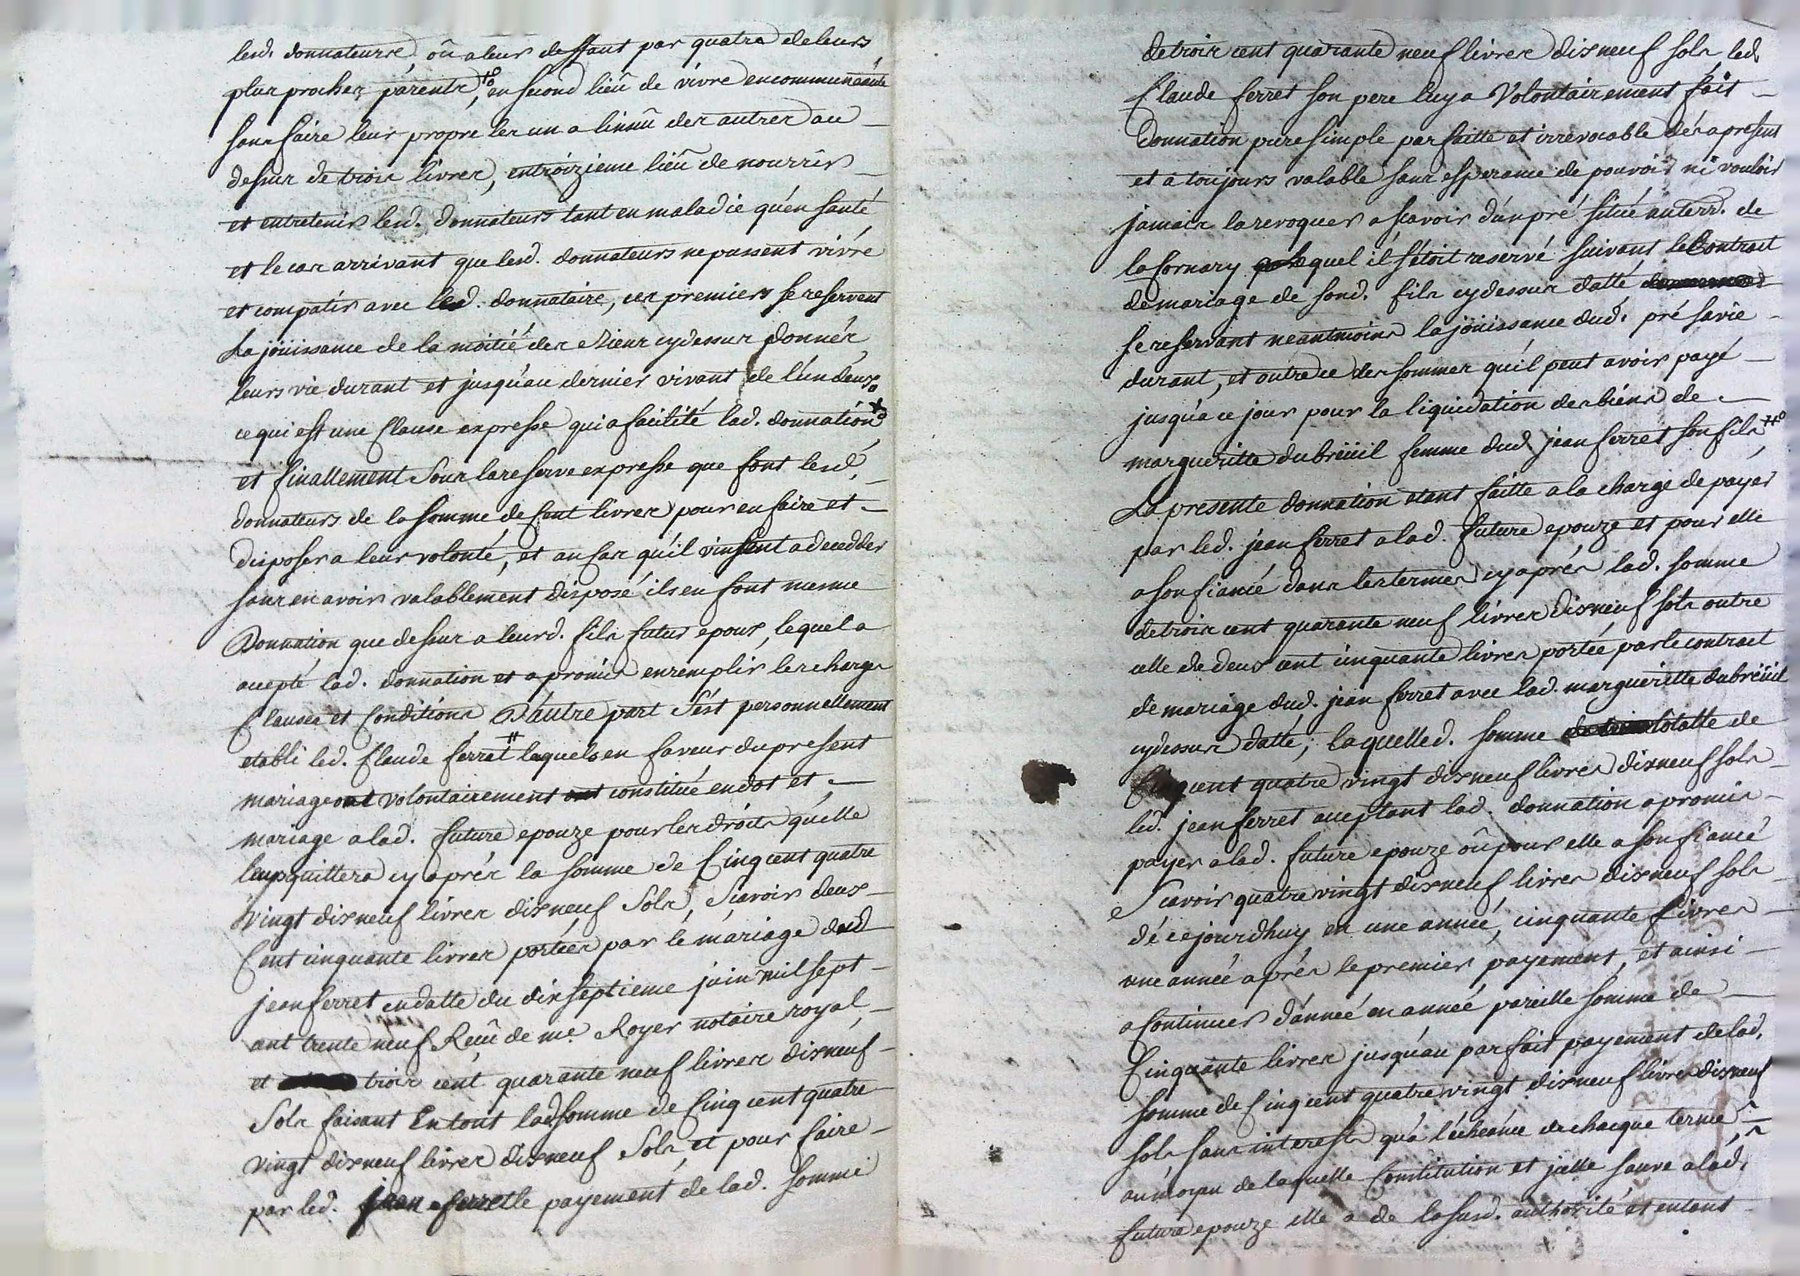 lesd. donnateurs, oû a leur deffaut par quatre de leurs
plus proches parents, en second lieû de vivre en communeauté
sans faire leur propre les un a linsçu des autres au
dessus de trois livres, en troizieme lieû de nourrir
et entretenir lesd. donnateurs tant en maladie qu'en santé
et le cas arrivant que lesd. donnateurs ne pussent vivre
et compatir avec led. donnataire, ces premiers se reservent
La joüissance de la moitié des Biens cy dessus donnés
leurs vie durant et jusqu'au dernier vivant de l'un deux
ce qui est une Clause expresse qui a facilité lad. donnation
et finallement sous la reserve expresse que font lesd.
donnateurs de la somme de Cent livres pour en faire et
disposer a leur volonté, et au Cas qu'il vinsent a decedder
sans en avoir valablement disposé ils en font mesme
Donnation que dessus a leurd. fils futur epoux, lequel a
accepté lad. donnation et a promis en remplir les charges
Clauses et Conditions D'autre part S'est personnellement
etabli led. Claude ferret lequels en faveur du present
mariage ont volontairement ont constitué en dot et
mariage a lad. future epouze pour les droits qu'elle
leur quittera cy aprés la somme de Cinq cent quatre
vingt dixneuf livres dixneuf Sols, Scavoir deux
Cent cinquante livres portées par le mariage dud.
jean ferret en datte du dix septieme juin mil sept
cent trente neuf Reçu de me. Royer notaire royal,
et trois cent quarante neuf livres dixneuf
Sols faisant En tout lad. somme de Cinq cent quatre
vingt dixneuf livres dixneuf Sols et pour faire
par led. jean ferret le payement de lad. somme
de trois cent quarante neuf livres dixneuf sols, led.
Claude ferret son pere luy a Volontairement fait
Donnation pure simple parfaitte et irrevocable dés a present
et a toujours valable sans esperance de pouvoir ni vouloir
jamais la revoquer a scavoir d'un pré, situé au terr. de
la Cornary lequel il s'étoit reservé suivant le Contrait
de mariage de sond. fils cy dessus datté
se reservant neantmoins la joüissance dud. pré sa vie
durant, et outre ce des sommes qu'il peut avoir payé
jusqu'a ce jour pour la liquidation des biens de
margueritte dubrëüil femme dud. jean ferret son fils
La presente donnation etant faitte a la charge de payer
par led. jean ferret a lad. future epouze et pour elle
a son fiancé dans les termes cy aprés lad. somme
de trois cent quarante neuf livres dixneuf sols outre
celle de deux cent cinquante livres portée par le contract
de mariage dud. jean ferret avec lad. margueritte dubrëüil
cy dessus datté; laquelle d. somme totalle de
Cinq cent quatre vingt dixneuf livres dixneuf sols
led. jean ferret acceptant lad. donnation a promis
payer a lad. future epouze oû pour elle a son fiancé
Scavoir quatre vingt dixneuf livres dixneuf sols
dé ce jourdhuy en une année, cinquante livres
une année aprés le premier payement, et ainsi
a Continuer d'année en année pareille somme de
Cinquante livres jusqu'au parfait payement de lad.
somme de Cinq cent quatre vingt dixneuf livres dixneuf
sols sans interests qu'a l'échéance de chaque terme
au moyen de laquelle Constitution et jcelle sauve a lad.
future epouze elle a de la susd. authorité et entant